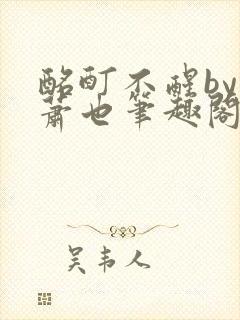 酩酊不醒by
萧也笔趣阁
吴韦人